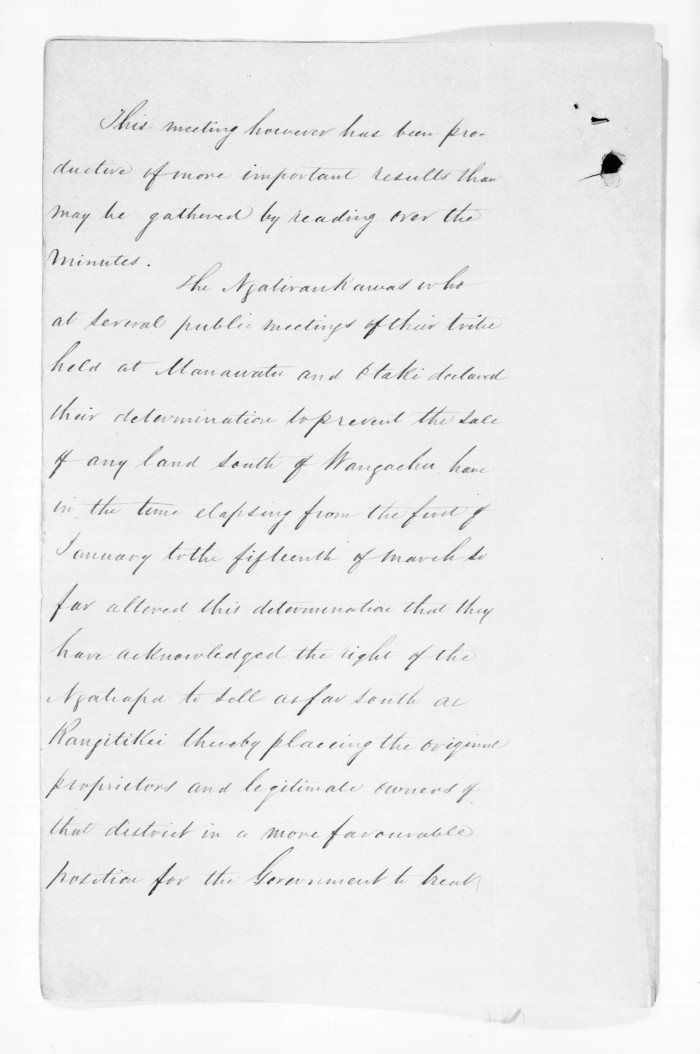 This meeting however has been pro-
ductive of more important results than
may be gathered by reading over the
Minutes.
The Ngatiraukawas who
at several public meetings of their tribe
held at Manawatu and Otaki declared
their determination to prevent the sale
of any land south of Wangaehu, have
in the time elapsing from the first of
January to the fifteenth of March so
far altered this determination that they
have acknowledged the right of the
Ngatiapa to sell as far south as
Rangitikei thereby placeing the original
proprietors and legitimate owners of
that district in a more favourable
position for the Government to treat